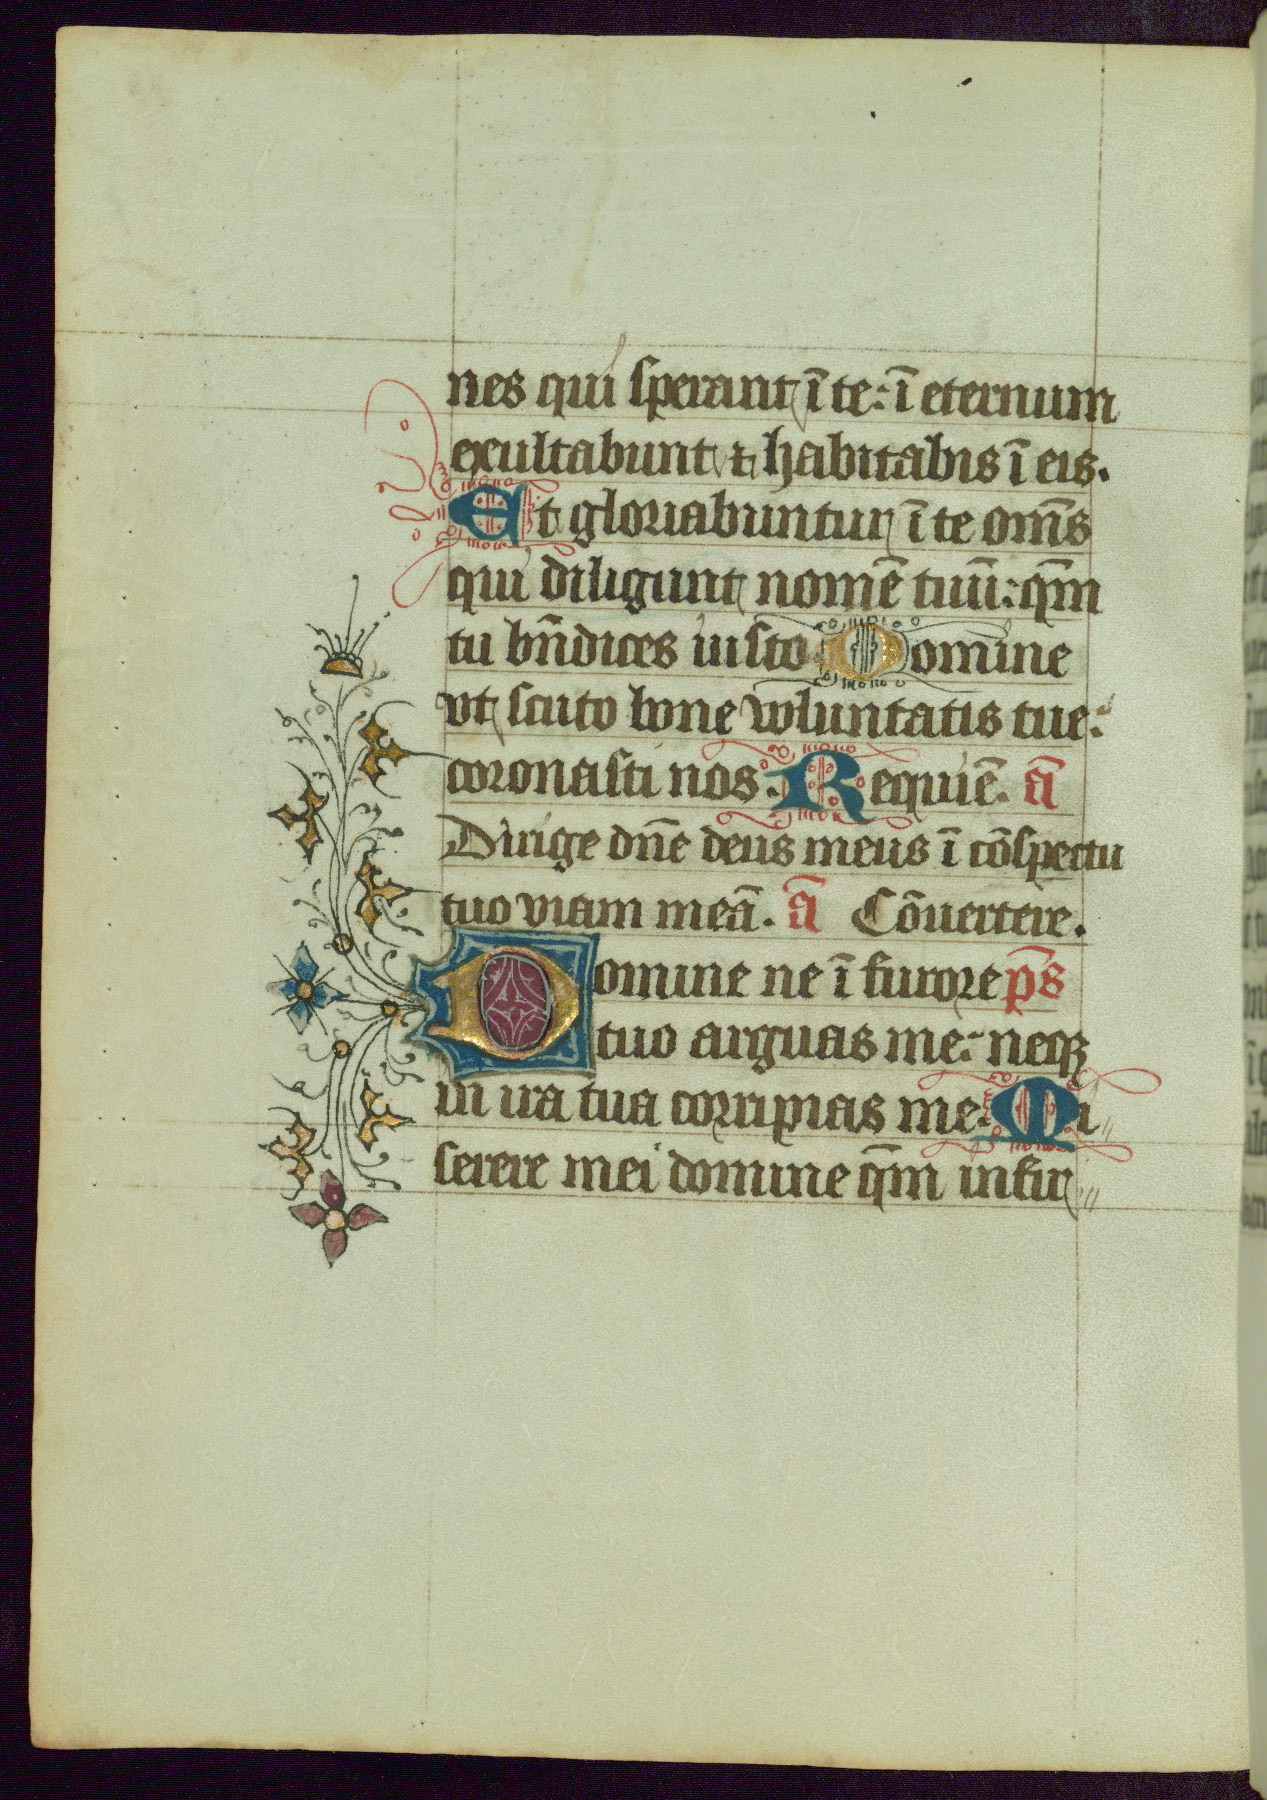 nes qui sperant ī te: ī eternum
exultabunt ⁊ habitabis ī eis.
Et gloriabuntur ī te om̄s
qui diligunt nomē tuū: qm̄
tu bn̄dices iusto Domine
vt scuto bone voluntatis tue:
coronasti nos. Requiē. ā
Dirige dn̄e deus meus ī cōspectu
tuo viam meā. ā Cōuertere.
Domine ne ī furore ps̄
tuo arguas me: neqꝫ
in ira tua corripias me. Mi
serere mei domine qm̄ infir